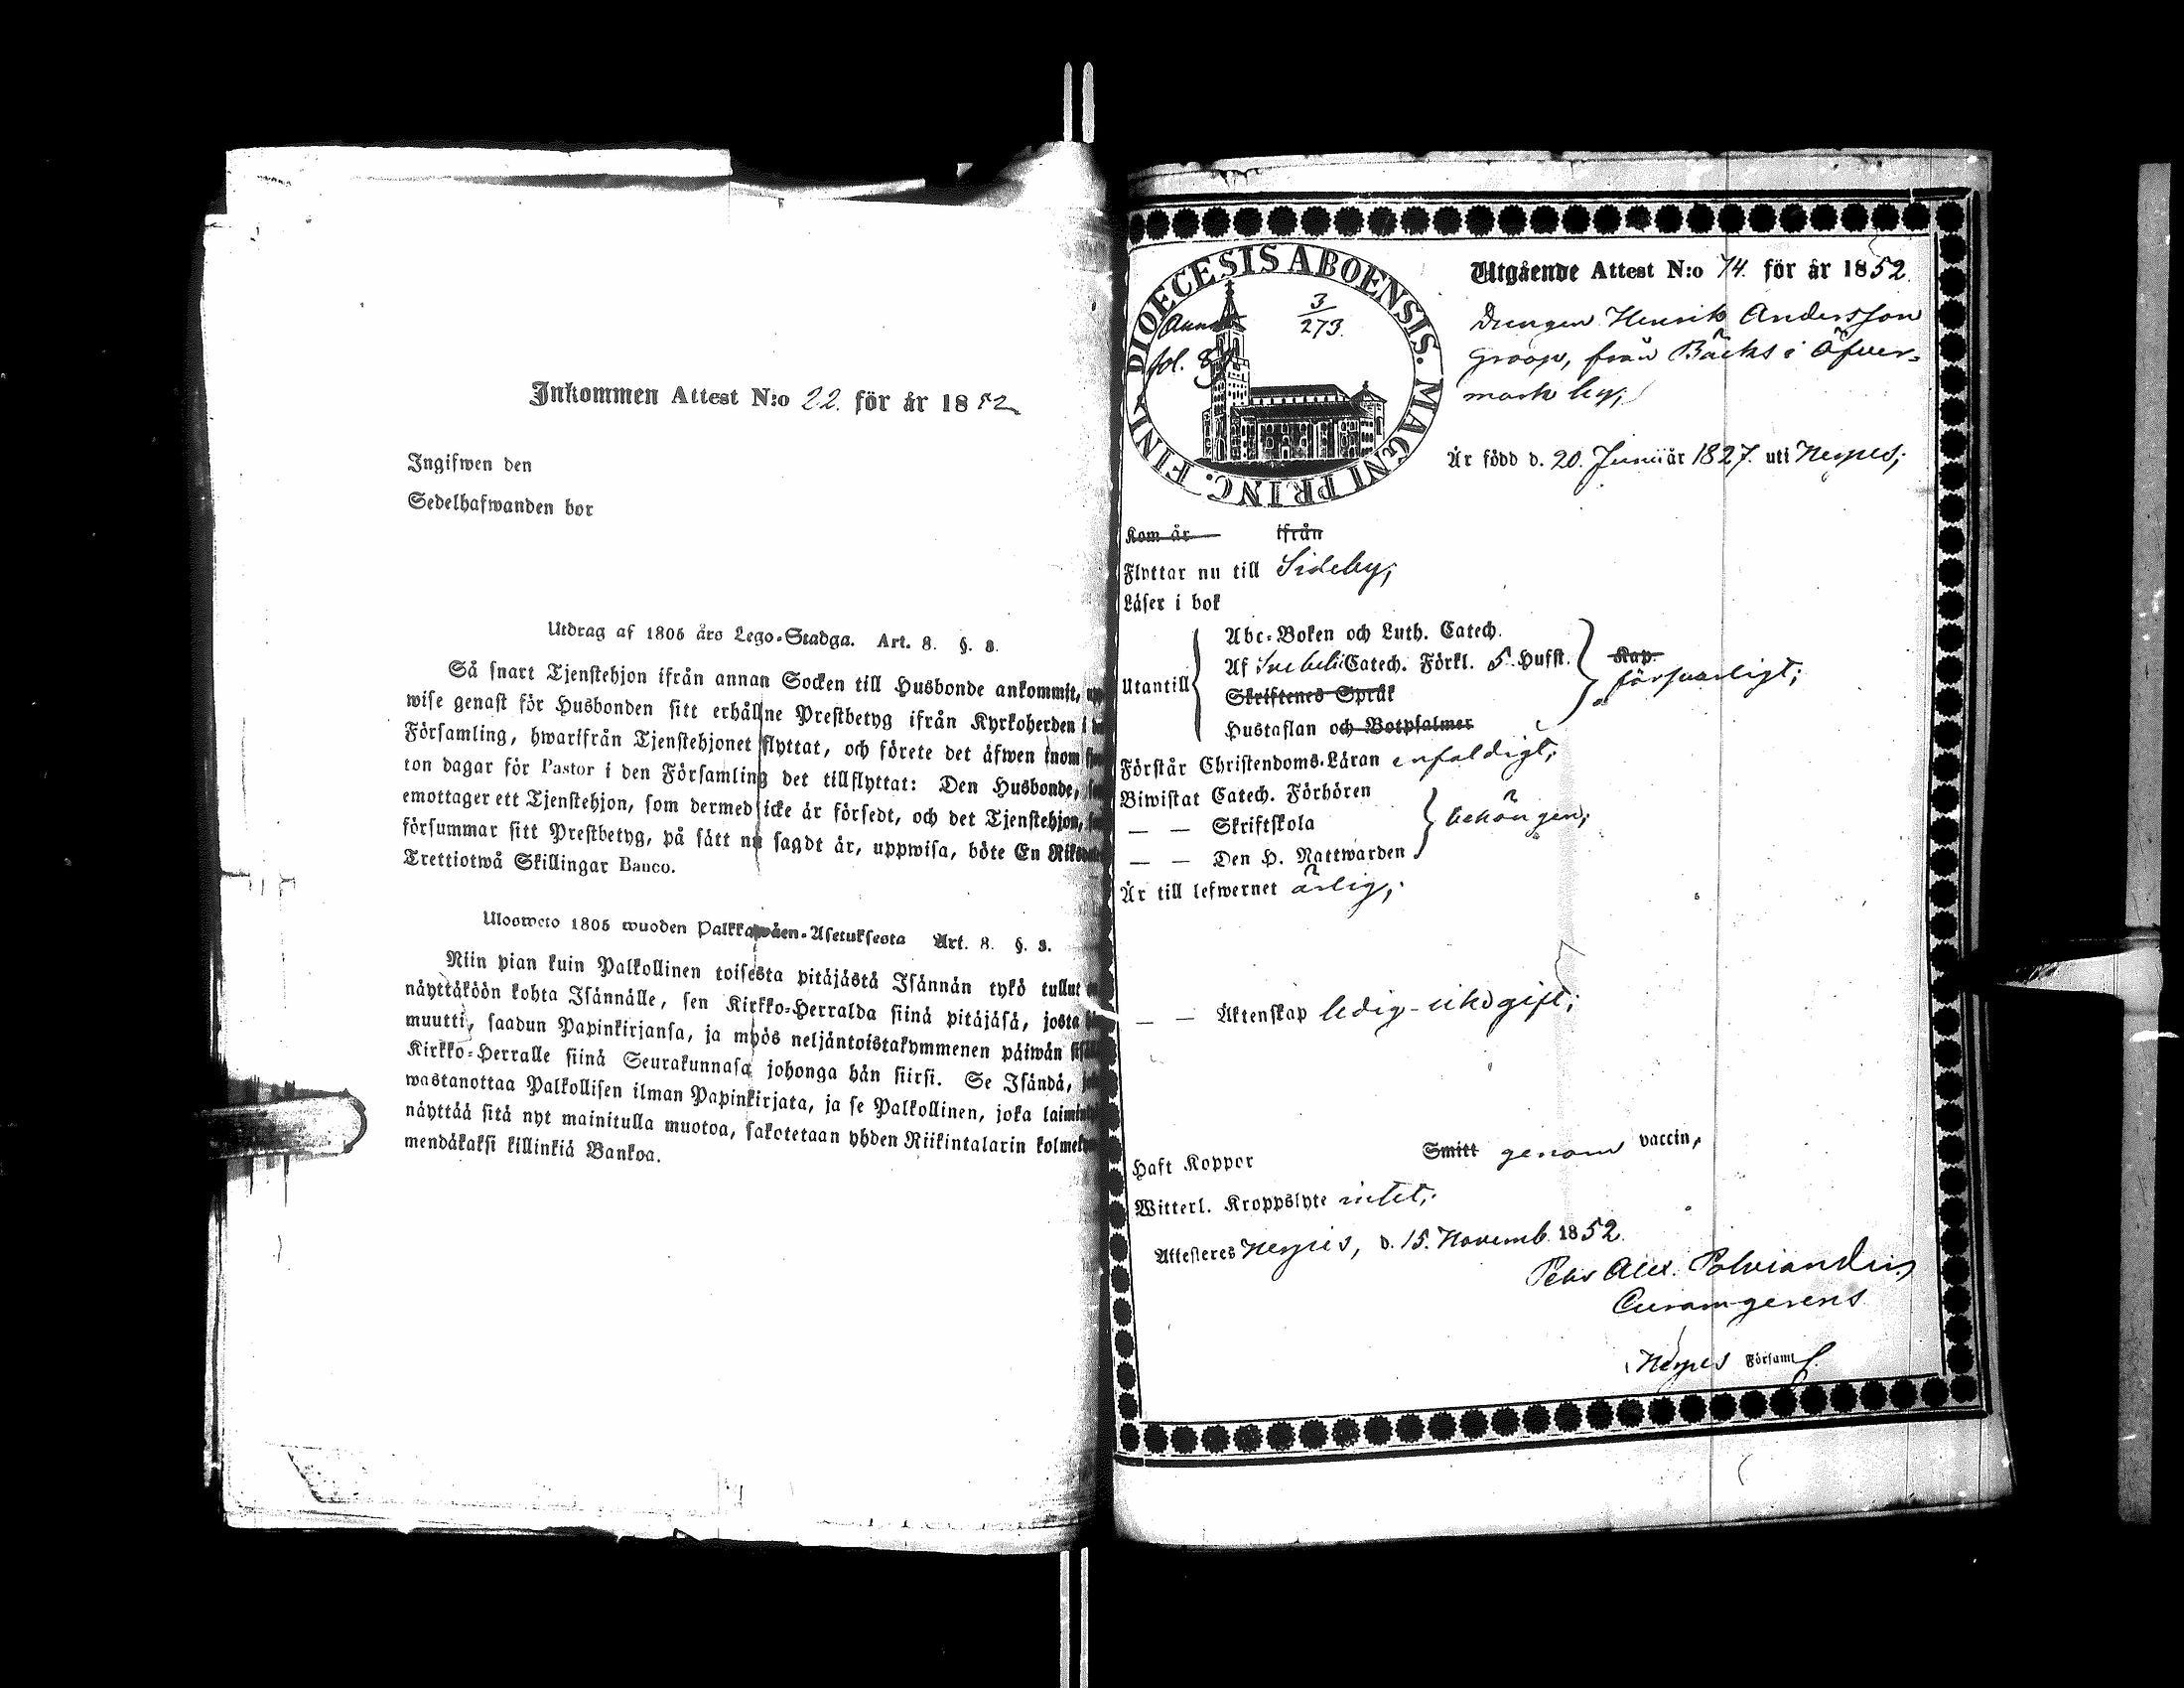 Inkommen Attest N:o 22. för år 1852
Ingifwen den
Sedelhafwanden bor
Utdrag af 1805 års Lego-Stadga. Art. 8. §. 3.
Så snart Tjenstehjon ifrån annan Socken till Husbonde ankommit, upp
wise genast för Husbonden sitt erhållne Prestbetyg ifrån Kyrkoherden i
Församling, hwarifrån Tjenstehjonet flyttat, och förete det äfwen inom
ton dagar för Pastor i den Församling det tillflyttat: Den Husbonde,
emottager ett Tjenstehjon, som dermed icke är försedt, och det Tjenstehjon,
försummar sitt Prestbetyg, på sätt nu sagdt är, uppwisa, böte En Riksdaler
Trettiotwå Skillingar Banco.
Ulosweto 1805 wuoden Palkkawäen-Asetuksesta Art. 8. §. 3.
Niin pian kuin Palkollinen toisesta pitäjästä Isännän tykö tullut
näyttäköön kohta Isännälle, sen Kirkko-Herralda siinä pitäjäsä, josta
muutti, saadun Papinkirjansa, ja myös neljäntoistakymmenen päiwän sisällä
Kirkko-Herralle siinä Seurakunnasa johonga hän siirsi. Se Isändä,
wastanottaa Palkollisen ilman Papinkirjata, ja se Palkollinen, joka laimin
näyttää sitä nyt mainitulla muotoa, sakotetaan yhden Riikintalarin kolmeky
mendäkaksi killinkiä Bankoa.
DIOECESIS ABOENSIS. MAGNI PRINC. FINL.
3
273.
fol.
Utgående Attest N:o 74. för år 1852.
Drengen Henrik Andersson
Groop, från Bäcks i Öfver-
mark by;
Är född d. 20. Junii år 1827. uti Nerpes;
Kom år ifrån
Flyttar nu till Sideby;
Läser i bok
Utantill
Abc-Boken och Luth. Catech.
Af Svebelii Catech. Förkl. 5. Hufst.
Skriftenes Språk
Hustaflan och Botpsalmer
Kap.
försvarligt;
Förstår Christendoms-Läran enfaldigt;
Biwistat Catech. Förhören
— — Skriftskola
— — Den H. Nattwarden
behörigen;
Är till lefwernet ärlig;
— — Äktenskap ledig-
Haft Koppor Smitt genom vaccin,
Witterl. Kroppslyte intet;
Attesteres Nerpes, d. 15. Novemb. 1852.
Petr Alex. Polviander,
Curam gerens
Nerpes Församl.